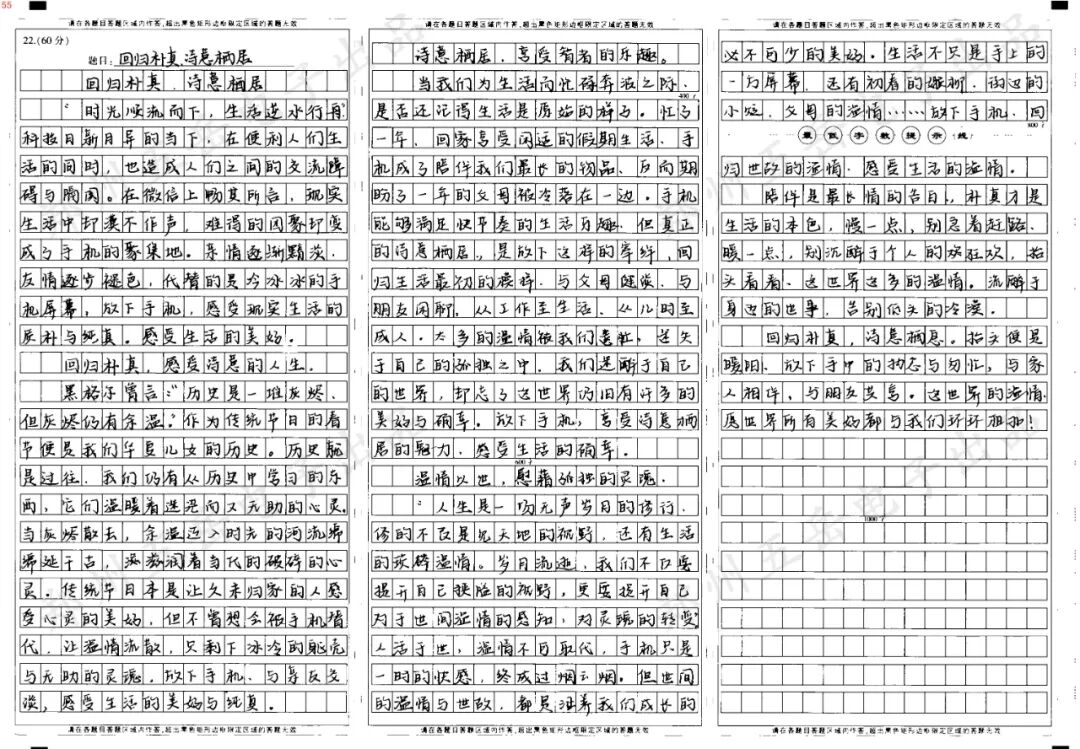 55
请在各题目答题区域内作答,超出黑色矩形边框限定区域的答题无效
22.(60分)
题目:回归朴真,诗意栖居
回归朴真,诗意栖居
"时光顺流而下,生活逆水行舟"
科技日新月异的当下,在便利人们生
活的同时,也造成人们之间的交流障
碍与隔阂。在微信上畅其所言,现实
生活中却默不作声,难得的团聚却变
成了手机的聚集地。亲情逐渐黯淡,
友情逐步褪色,代替的是今冰冰的手
机屏幕,放下手机,感受现实生活的
质朴与纯真。感受生活的美好。
回归朴真,感受诗意的人生。
黑格尔曾言:"历史是一堆灰烬,
但灰烬仍有余温。"作为传统节日的春
节便是我们华夏儿女的历史。历史就
是过往,我们仍有从历史中学习的东
西,它们温暖着迷茫而又无助的心灵。
当灰烬散去,余温迈入时光的河流绵
绵延千古,滋润着当代的破碎的心
灵。传统节日本是让久未归家的人感
受心灵的美好,但不曾想今被手机替
代,让温情流散,只剩下冰冷的躯壳
与无助的灵魂,放下手机,与亲友交
谈,感受生活的美好与纯真。
请在各题目答题区域内作答,超出黑色矩形边框限定区域的答题无效
请在各题目答题区域内作答,超出黑色矩形边框限定区域的答题无效
诗意栖居,享受智者的乐趣。
当我们为生活而忙碌奔波之际,
400字
是否还记得生活是原始的样子。忙了
一年,回家享受闲适的假期生活,手
机成了陪伴我们最长的物品,反而期
盼了一年的父母被冷落在一边。手机
能够满足快节奏的生活方趣,但真正
的诗意栖居,是放下这样的牵绊,回
归生活最初的模样,与父母健谈,与
朋友闲聊,从工作至生活,从儿时至
成人,太多的温情被我们遗忘,迷失
于自己的孤独之中,我们迷醉于自己
的世界,却忘了这世界仍旧有许多的
美好与确幸。放下手机,享受诗意栖
居的魅力,感受生活的确幸。
600字
温情以世,慰藉孤独的灵魂。
"人生是一场无声岁月的修行,
修的不仅是见天地的视野,还有生活
的琐碎温情。岁月流逝,我们不仅要
提升自己狭隘的视野,更要提升自己
对于世间温情的感知,对灵魂的转变"
人活于世,温情不可取代,手机只是
一时的快感,终成过烟云烟。但世间
的温情与世故,都是滋养我们成长的
请在各题目答题区域内作答,超出黑色矩形边框限定区域的答题无效
请在各题目答题区域内作答,超出黑色矩形边框限定区域的答题无效
必不可少的美好。生活不只是手上的
一方屏幕,还有初春的嫩柳,街边的
小短,父母的温情……放下手机,回
800字
最低字数提示线
归世故的温情,感受生活的温情。
陪伴是最长情的告白,朴真才是
生活的本色,慢一点,别急着赶路,
暖一点,别沉醉于个人的欢狂欢,抬
头看看,这世界这多的温情。流醉于
身边的世事,告别低头的冷漠。
回归朴真,诗意栖息。抬头便是
暖阳,放下手中的执态与匆忙,与家
人相伴,与朋友共鸟。这世界的温情,
愿世界所有美好都与我们环环相扣!
1000字
请在各题目答题区域内作答,超出黑色矩形边框限定区域的答题无效